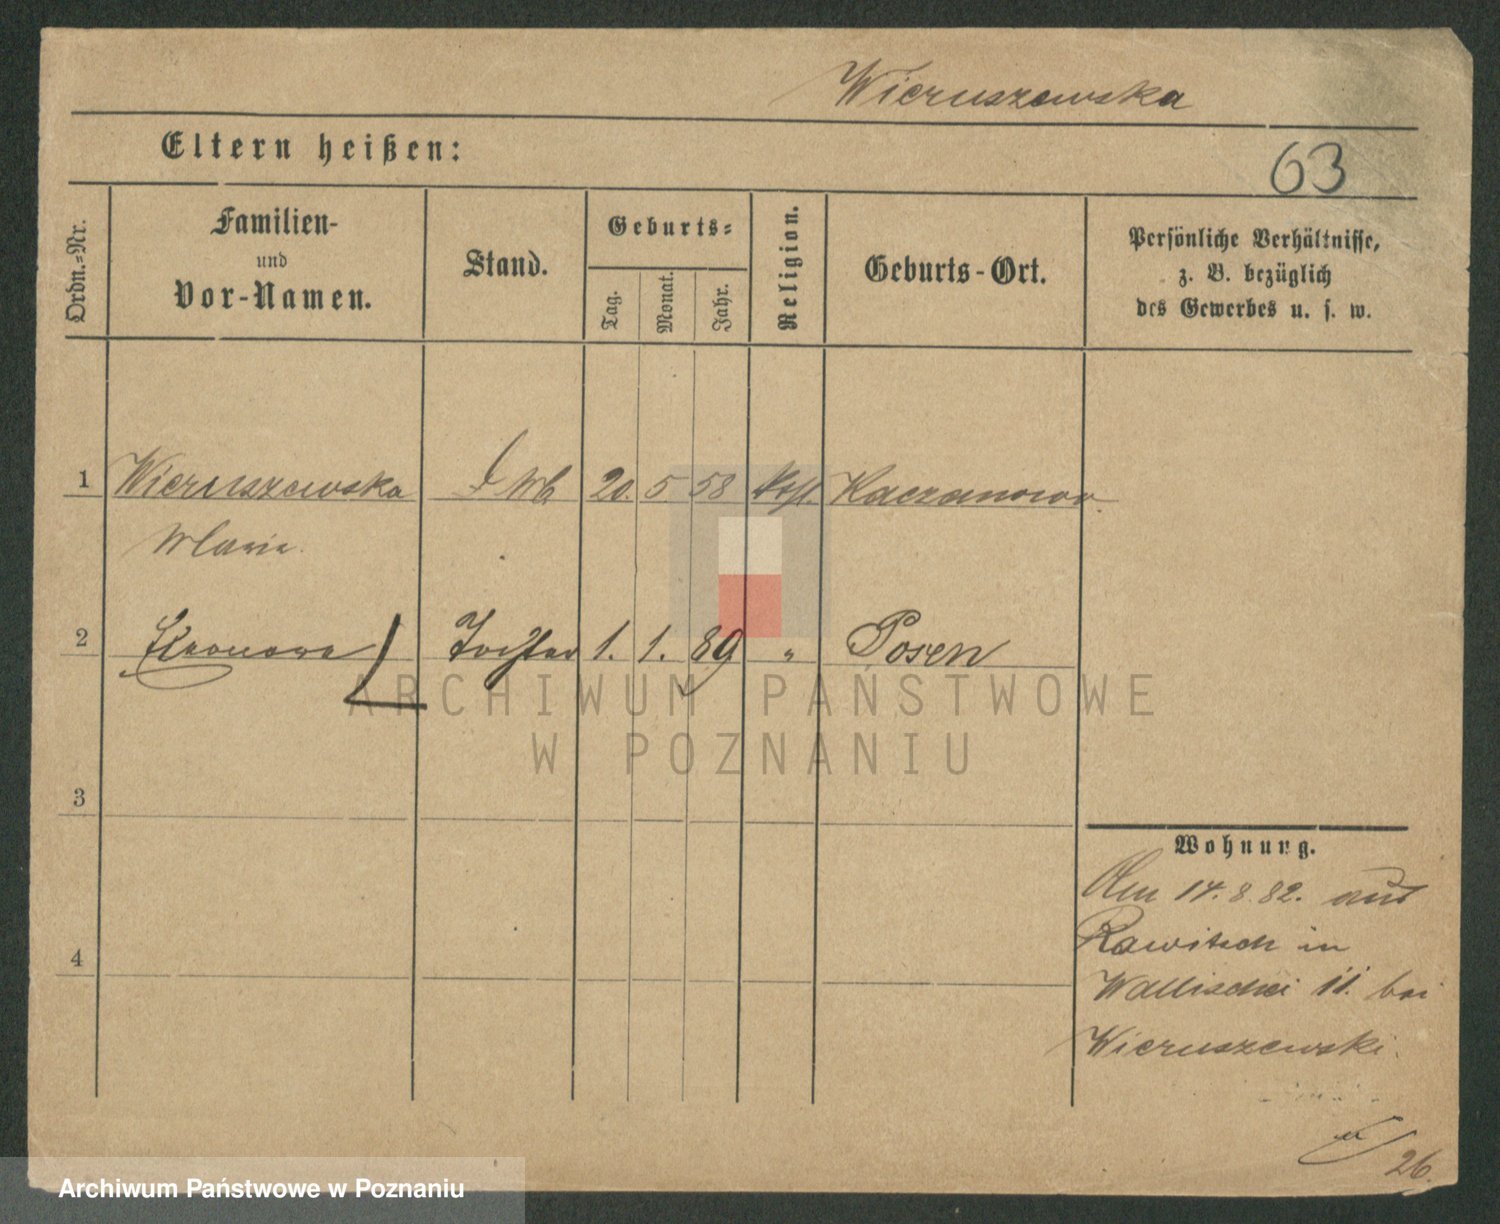 Wieruszewska
Eltern heißen:
63
Ordn.=Nr.
Familien-
und
Vor-Namen.
Stand.
Geburts=
Tag.
Monat.
Jahr.
Religion.
Geburts-Ort.
Persönliche Verhältnisse,
z. B. bezüglich
des Gewerbes u. s. w.
1 Wieruszewska 20. 5 58 Kaczanowo
Maria
2 Eleonora Tochter 1. 1. 89 " Posen
ARCHIWUM PAŃSTWOWE
W POZNANIU
3
4
Wohnung.
Am 14. 8. 82. aus
Rawitsch in
Wallischei 11. bei
Wieruszewski.
26.
Archiwum Państwowe w Poznaniu